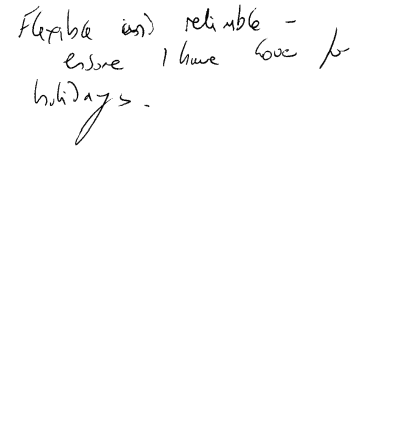 Flexible and reliable -
ensure I have for
holidays.